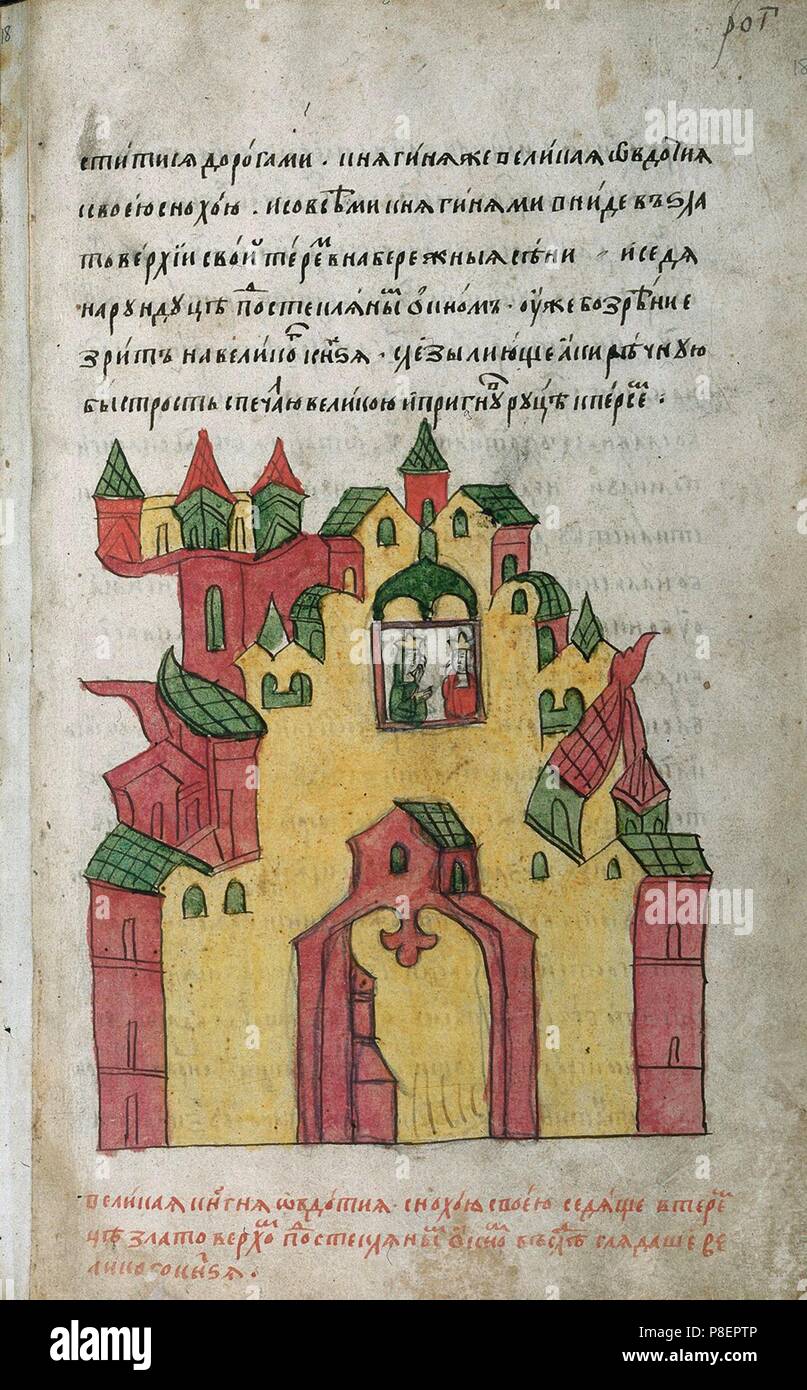 рог
18
ститися дорогами. княгиня же великая Ѡвдотия
своею снохою. и со всѣми княгинями вниде въ зла
товерхіи свой терем в набережныя сѣни и седя
на рундуцѣ под стекляным окном. уже бо зрѣние
зритъ на великог кнѕя. слезы лиюще аки рѣчную
быстрость с печалю великою и пригнув руцѣ к персем.
великая кнгня Ѡвдотия. снохою своею седяще в терем
цѣ златоверхом под стекляным окном въслѣд глядаше ве
ликого кнѕя.
alamy
Image ID: P8EPTP
www.alamy.com